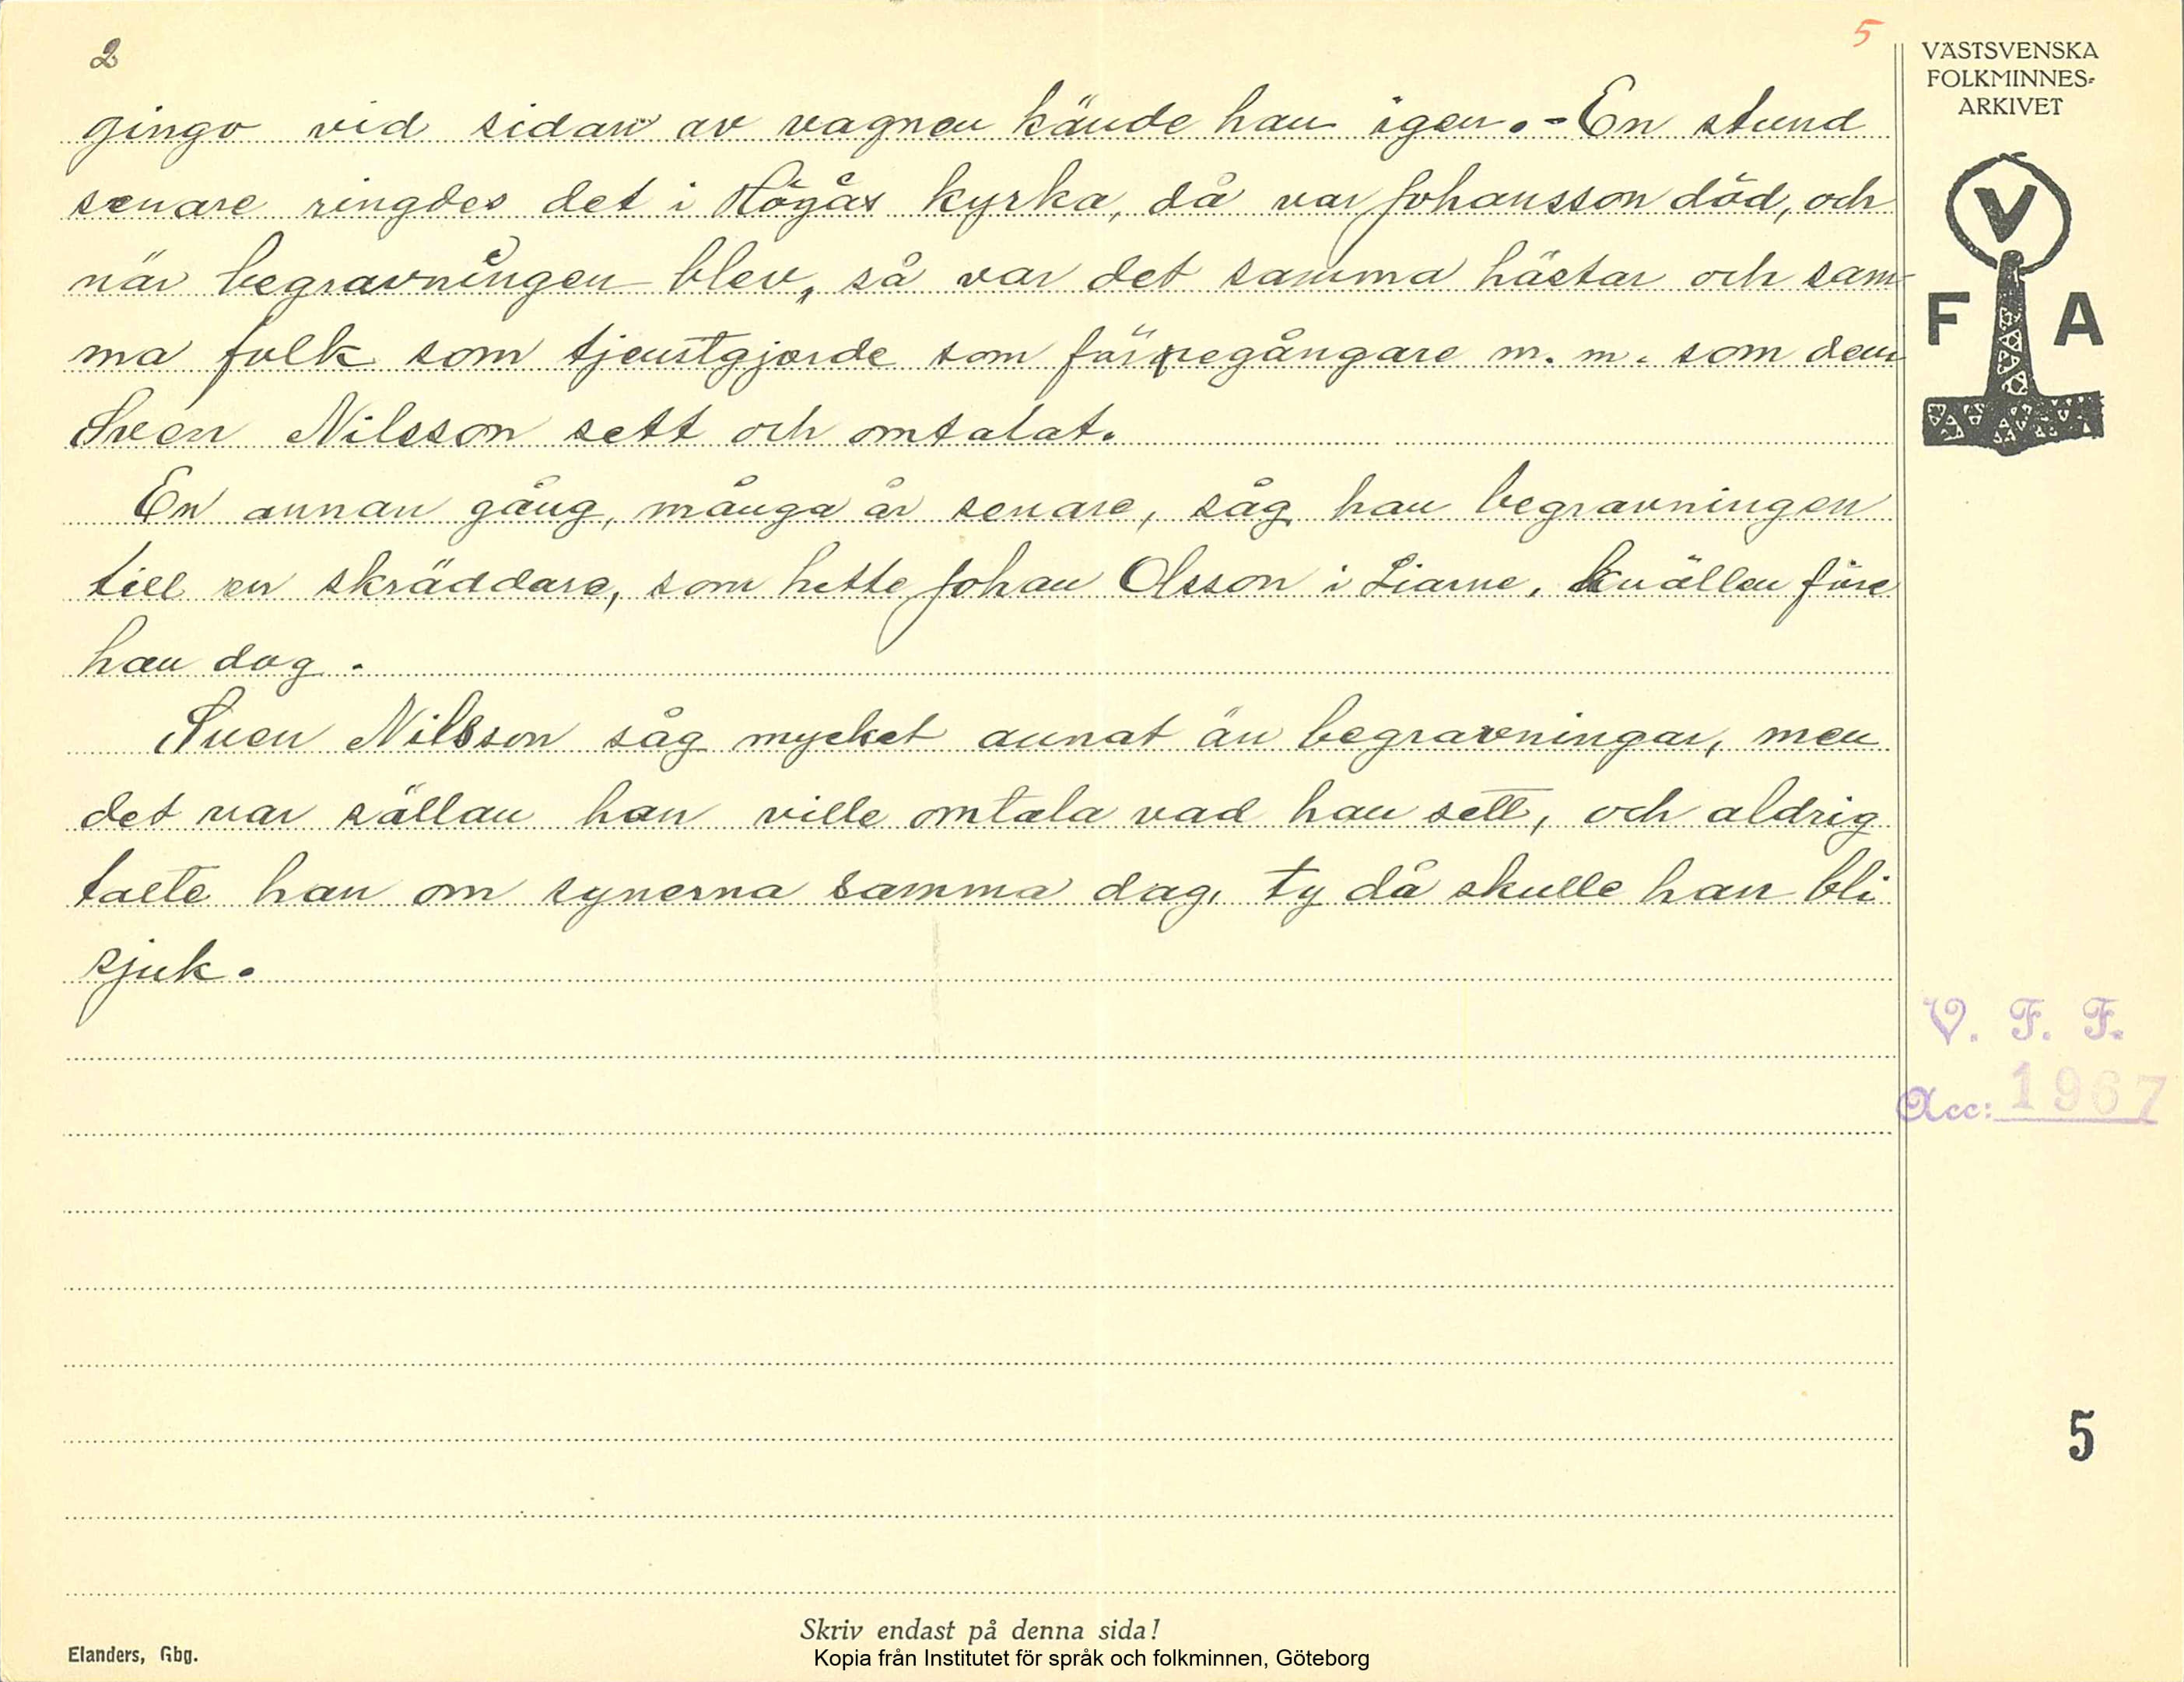 2
5
gingo vid sidan av vagnen kände han igen. - En stund
senare ringdes det i Högås kyrka, då var Johansson död, och
när begravningen blev, så var det samma hästar och sam-
ma folk som tjenstgjorde som föregångare m. m. som dem
Sven Nilsson sett och omtalat.
En annan gång, många år senare, såg han begravningen
till en skräddare, som hette Johan Olsson i Liarne, kvällen före
han dog.
Sven Nilsson såg mycket annat än begravningar, men
det var sällan han ville omtala vad han sett, och aldrig
talte han om synerna samma dag, ty då skulle han bli
sjuk.
VÄSTSVENSKA
FOLKMINNES-
ARKIVET
V
F A
V. F. F.
Acc: 1967
5
Skriv endast på denna sida!
Elanders, Gbg.
Kopia från Institutet för språk och folkminnen, Göteborg